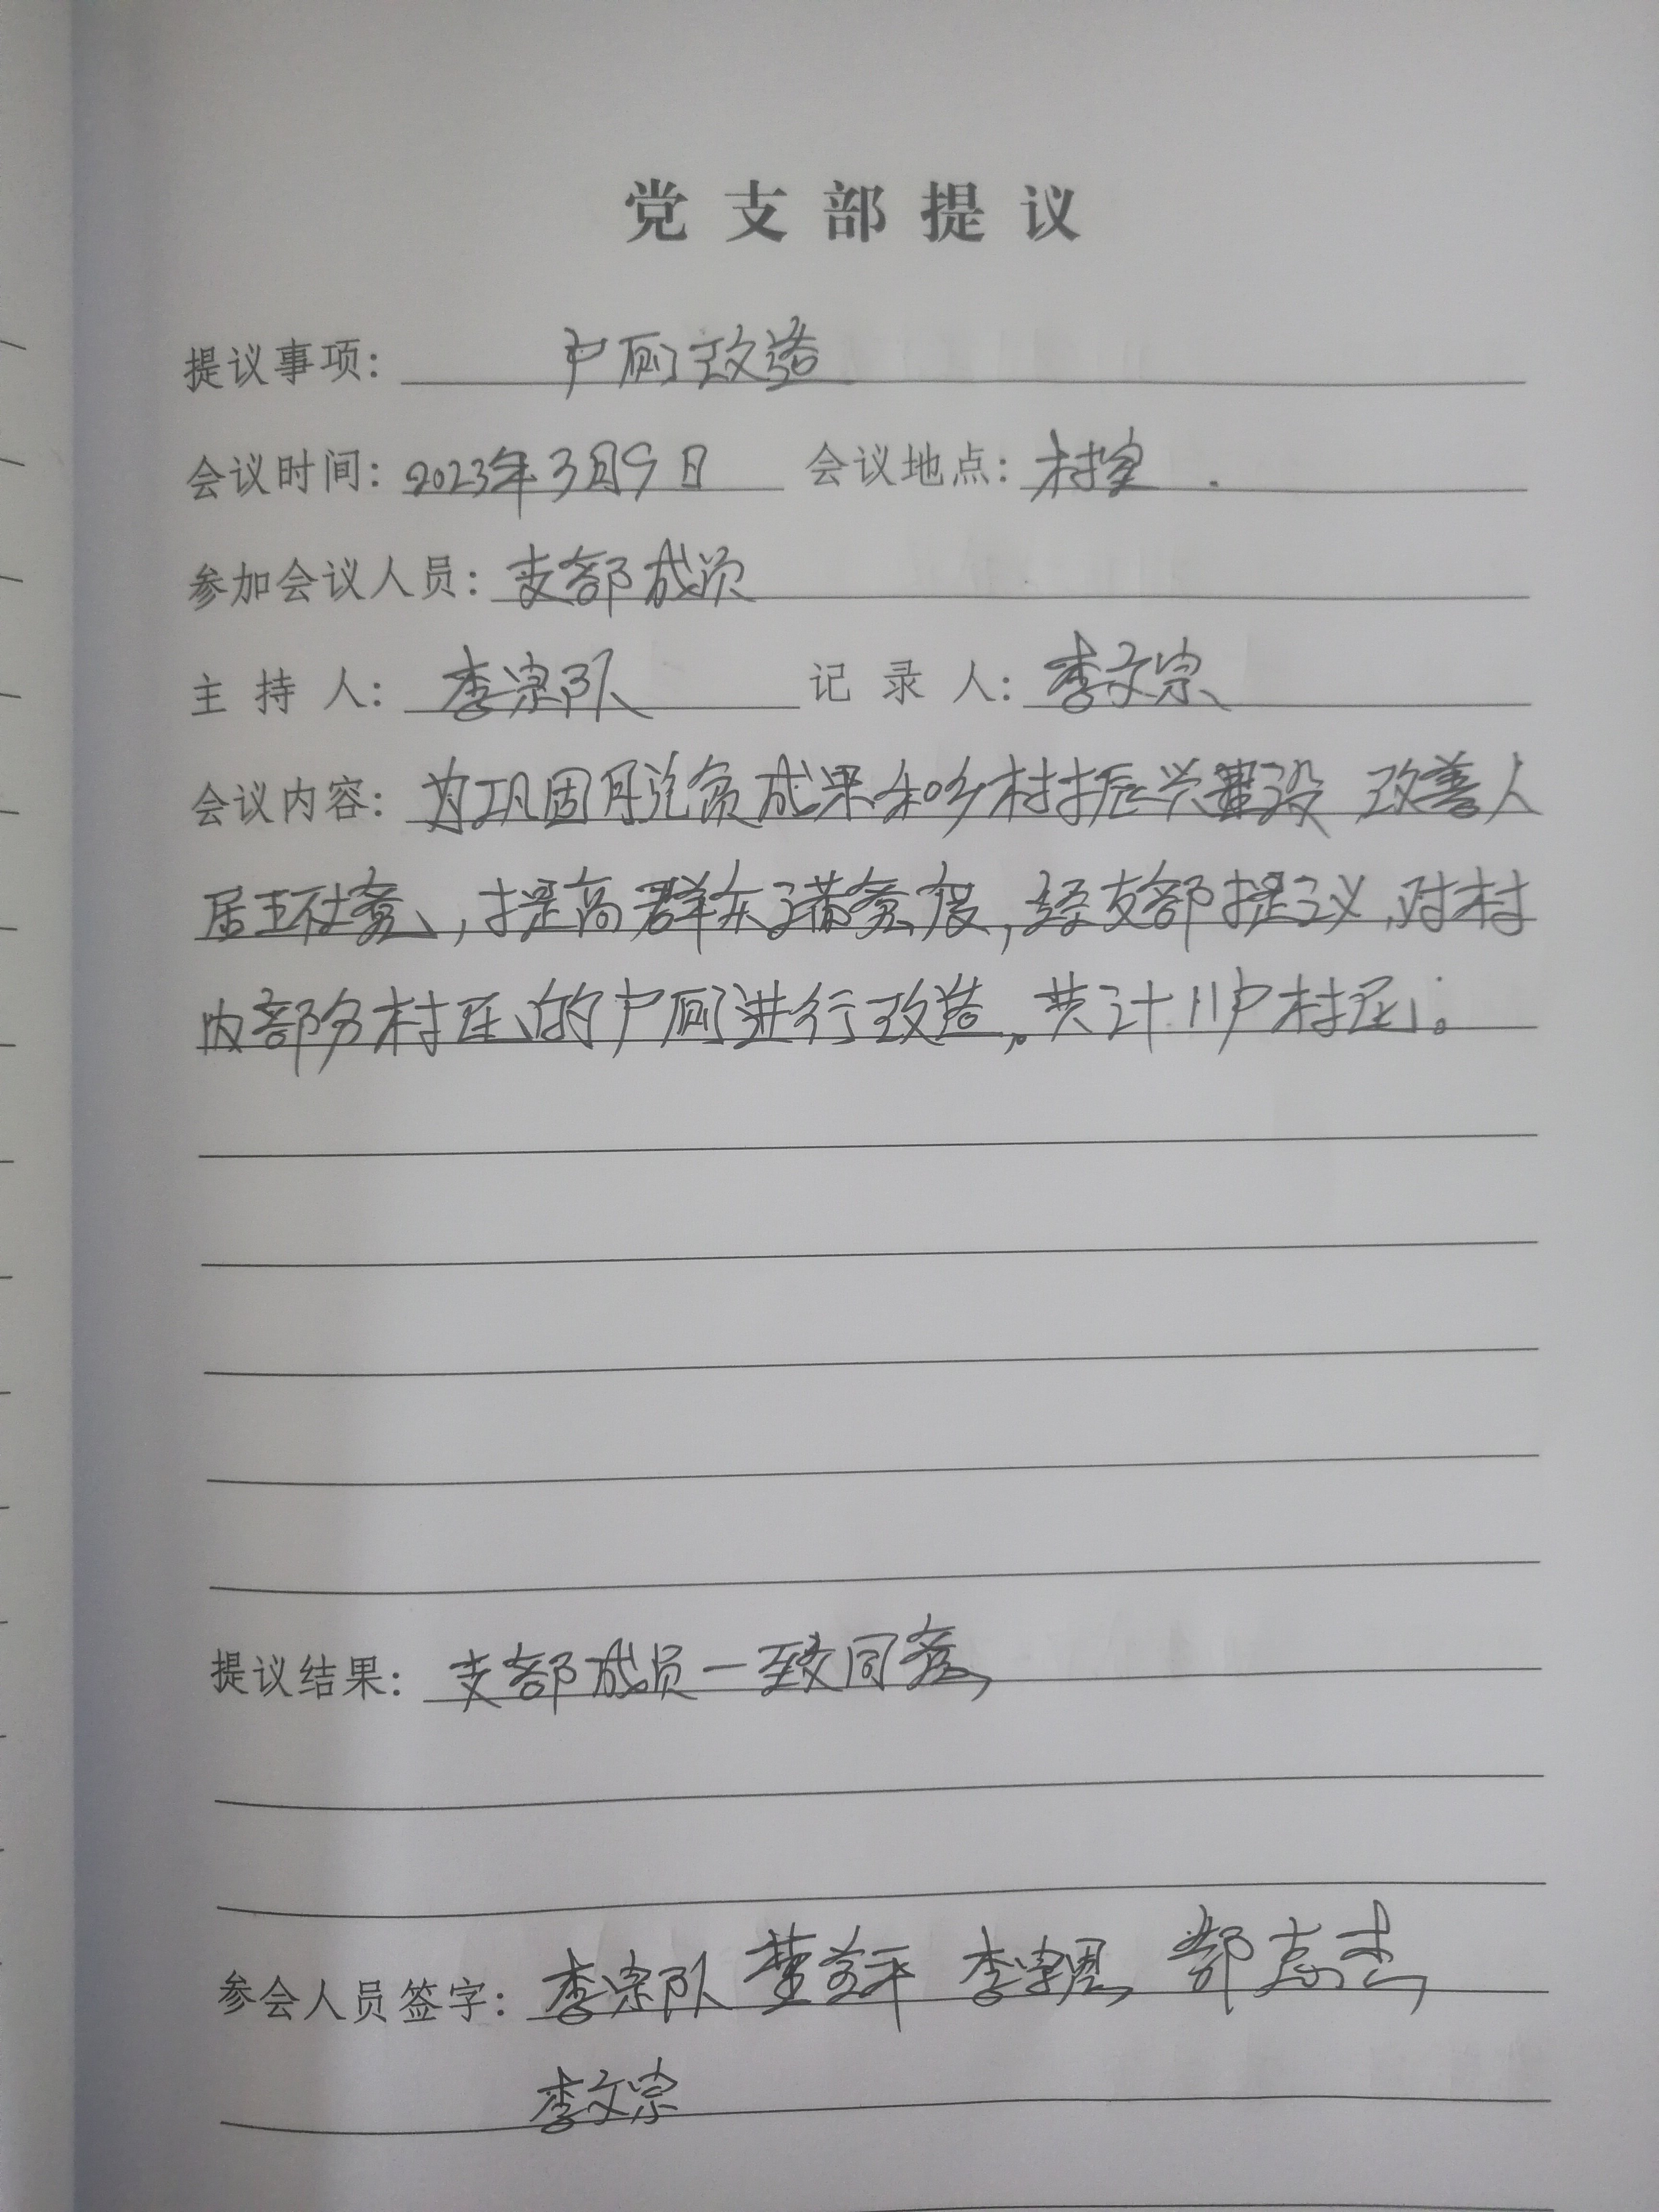 党支部提议
提议事项： 户厕改造
会议时间：2023年3月9日 会议地点：村室.
参加会议人员：支部成员
主持人：李宗队 记录人：李文宗
会议内容：为巩固脱贫成果和乡村振兴建设 改善人
居环境，提高群众满意度，经支部提议，对村
内部分村民的户厕进行改造。共计11户村民。
提议结果：支部成员一致同意
参会人员签字：李宗队 李
李文宗